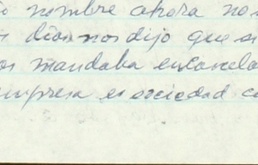 nombre ahora no
dias nos dijo que si
os mandaba encarcela
empresa en sociedad c